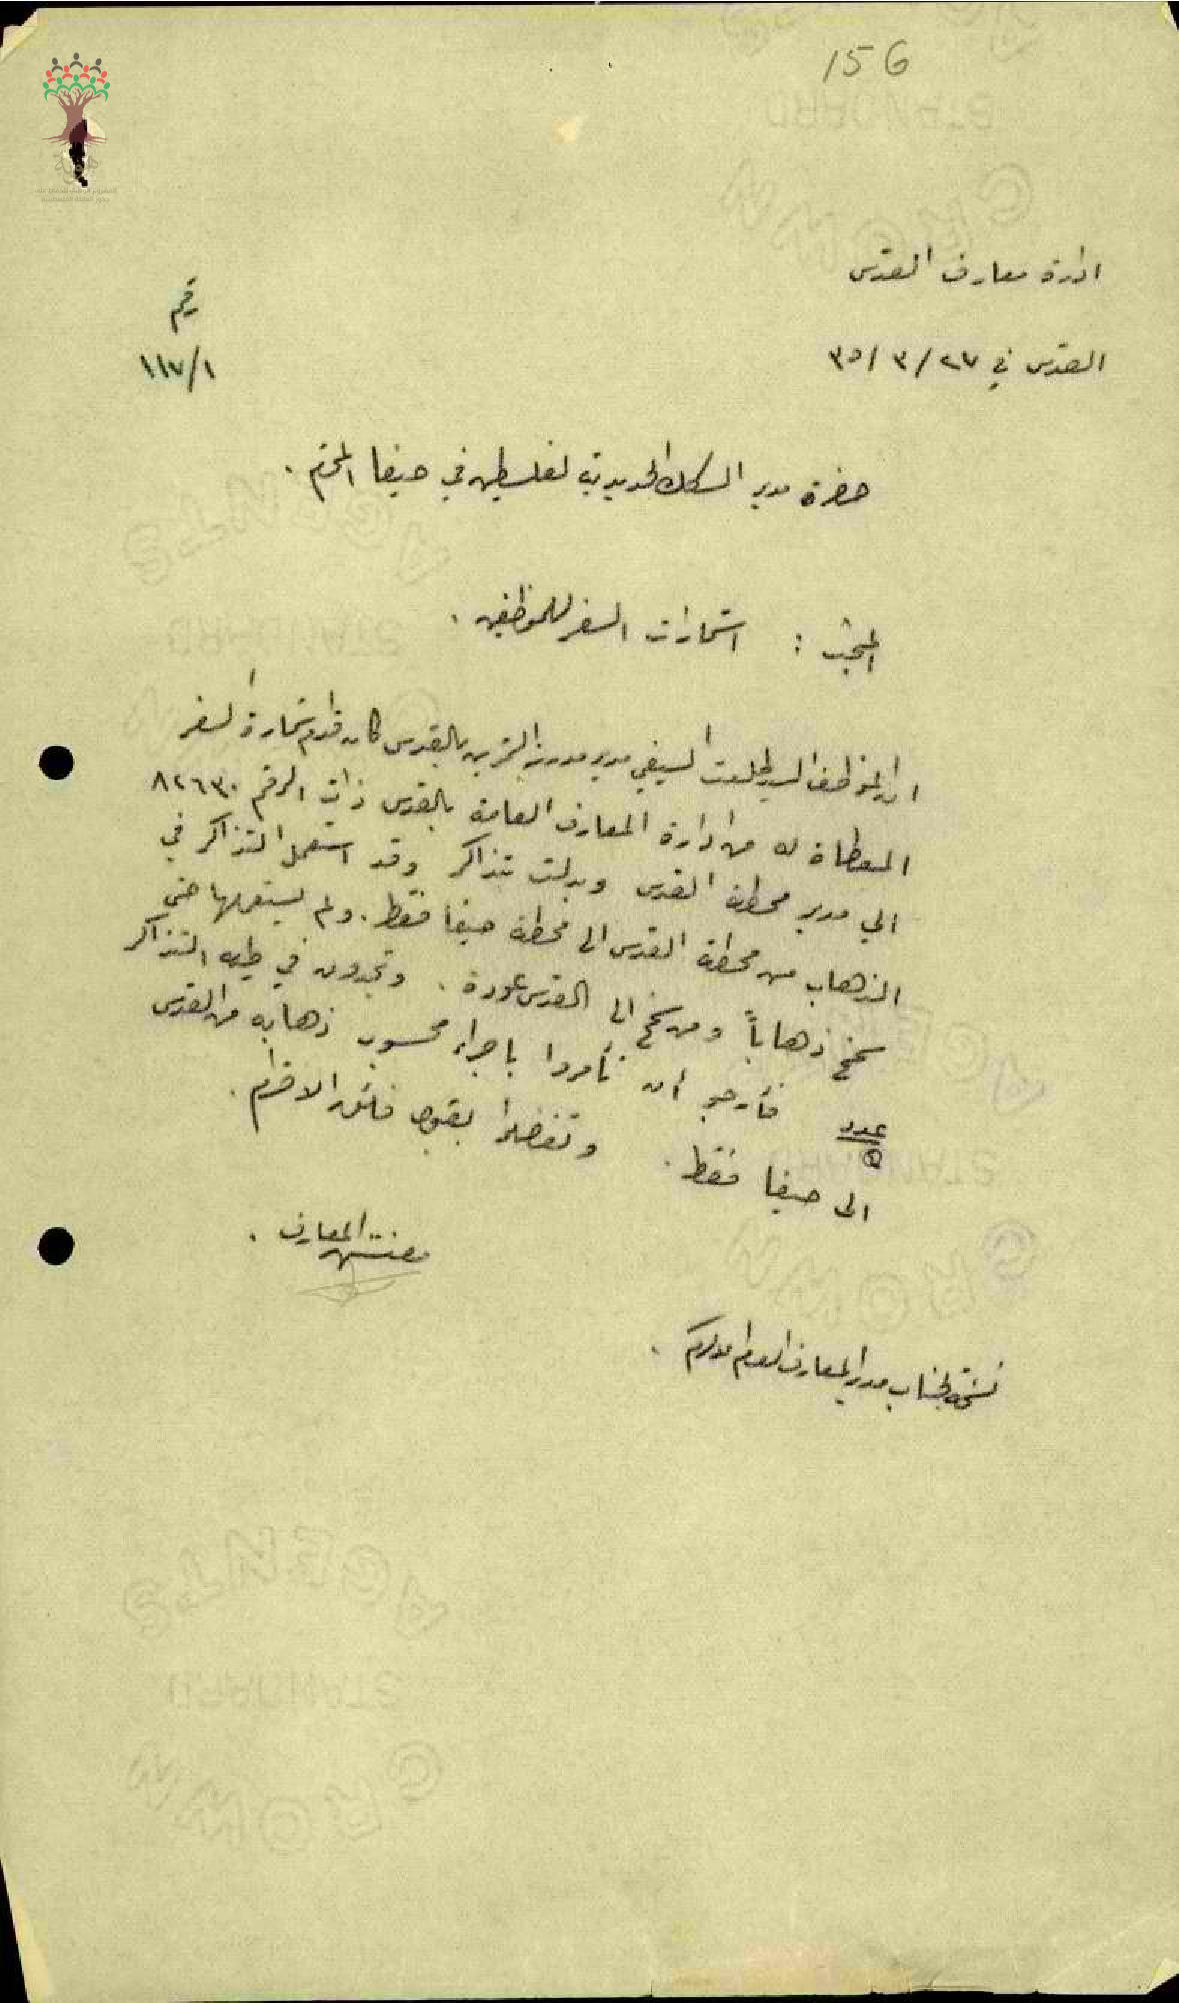 156
ادارة معارف القدس
رقم
القدس في ٢٧/٣/٣٥
١١٧/١
حضرة مدير السكك الحديدية لفلسطين في حيفا المحترم .
المبحث : استمارات السفر للموظفين .
ان الموظف السيد طلعت السيفي مدير مدرسة التمرين بالقدس كان قدم استمارة السفر
المعطاة له من ادارة المعارف العامة بالقدس ذات الرقم ٨٢٦٣٠
الى مدير محطة القدس وبدلت بتذاكر وقد استعمل التذاكر في
الذهاب من محطة القدس الى محطة حيفا فقط . ولم يستعملها حتى
سمخ ذهاباً ومن سمخ الى القدس عودة . وتجدون في طيه التذاكر
عدد
فأرجو أن تأمروا باجراء محسوب ذهابه من القدس
الى حيفا فقط . وتفضلوا بقبول فائق الاحترام .
مفتش المعارف .
نسخة لجناب مدير المعارف العام الاكرم .
AGENTS
STANDARD
CROWN